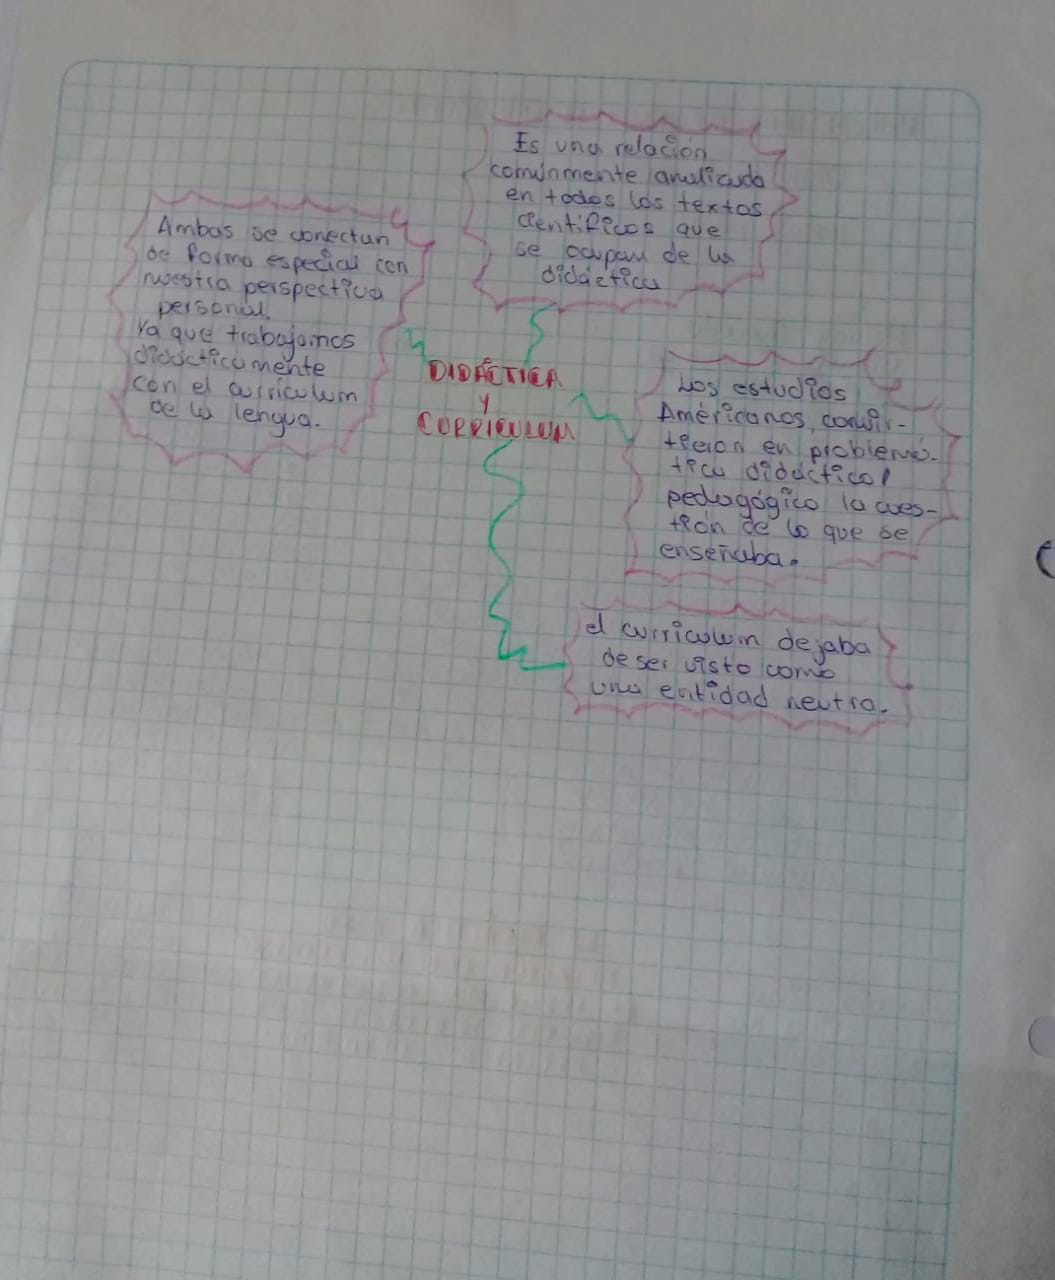 Es una relación
comúnmente analizada
en todos los textos
científicos que
se ocupan de la
didáctica
Ambas se conectan
de forma especial con
nuestra perspectiva
personal.
Ya que trabajamos
didácticamente
con el curriculum
de la lengua.
DIDÁCTICA
Y
CURRICULUM
Los estudios
Américanos, convir-
tieron en problemá-
tica didáctico/
pedagógico la cues-
tión de lo que se
enseñaba.
el curriculum dejaba
de ser visto como
una entidad neutra.